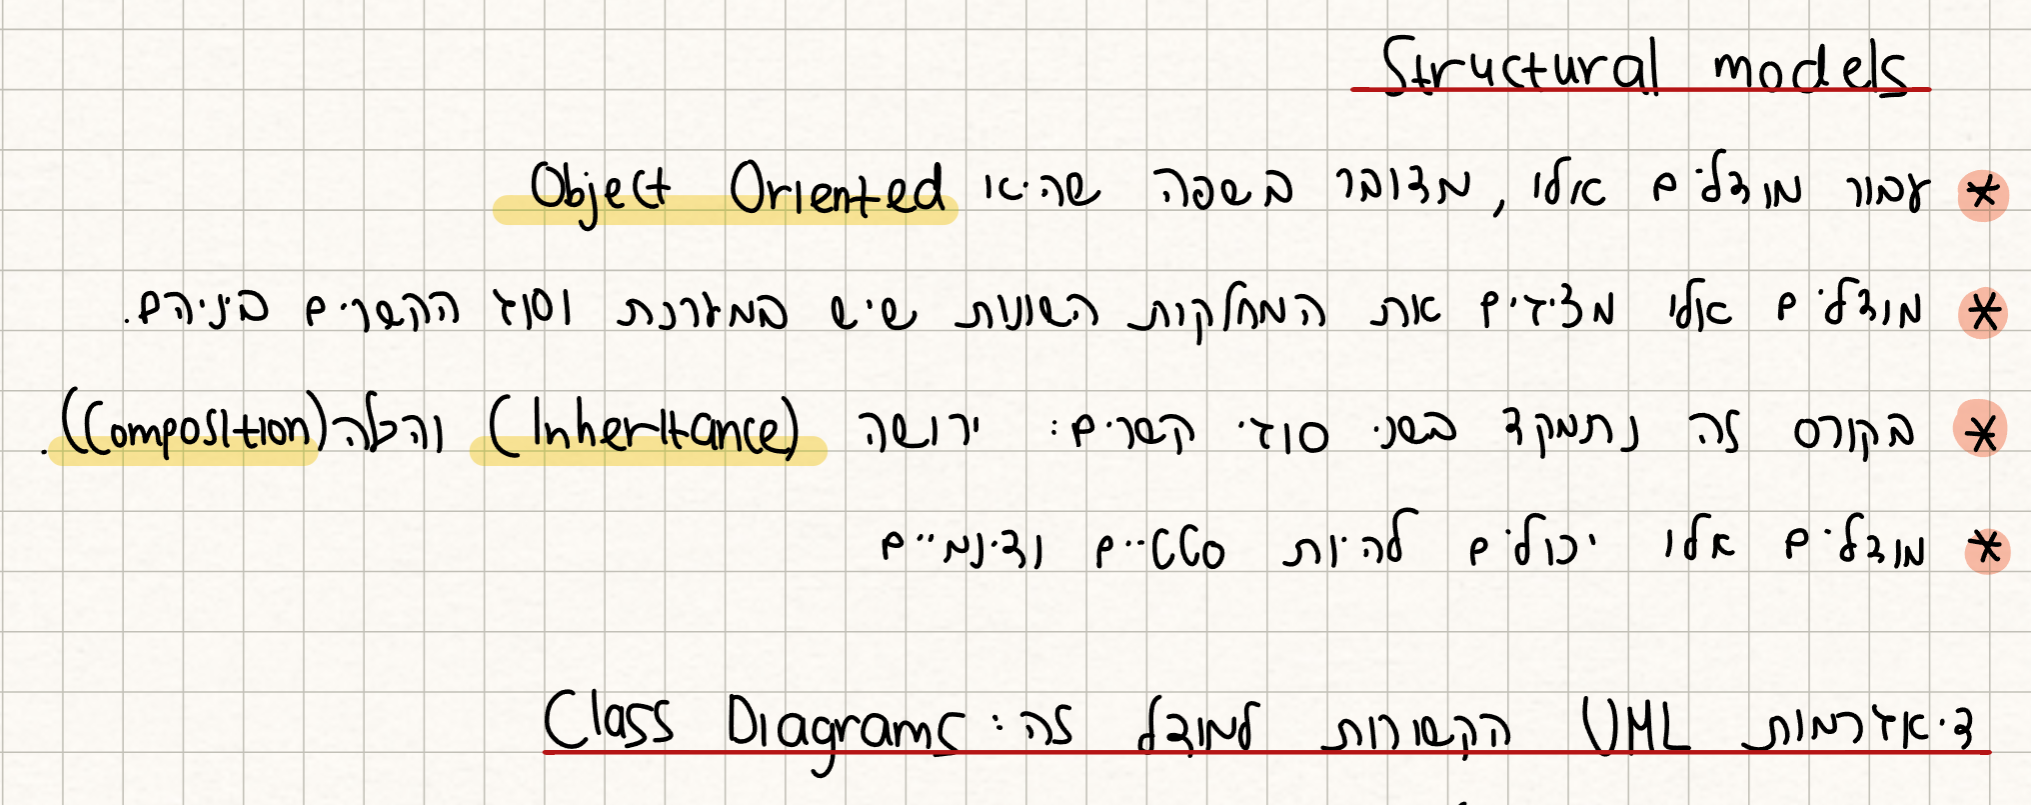 Structural models
* עבור מודלים אלו, מדובר בשפה שהיא Object Oriented
* מודלים אלו מציגים את המחלקות השונות שיש במערכת וסוג הקשרים ביניהם.
* בקורס זה נתמקד בשני סוגי קשרים: ירושה (Inheritance) והכלה (Composition).
* מודלים אלו יכולים להיות סטטיים ודינמיים
דיאגרמות UML הקשורות למודל זה: Class Diagrams